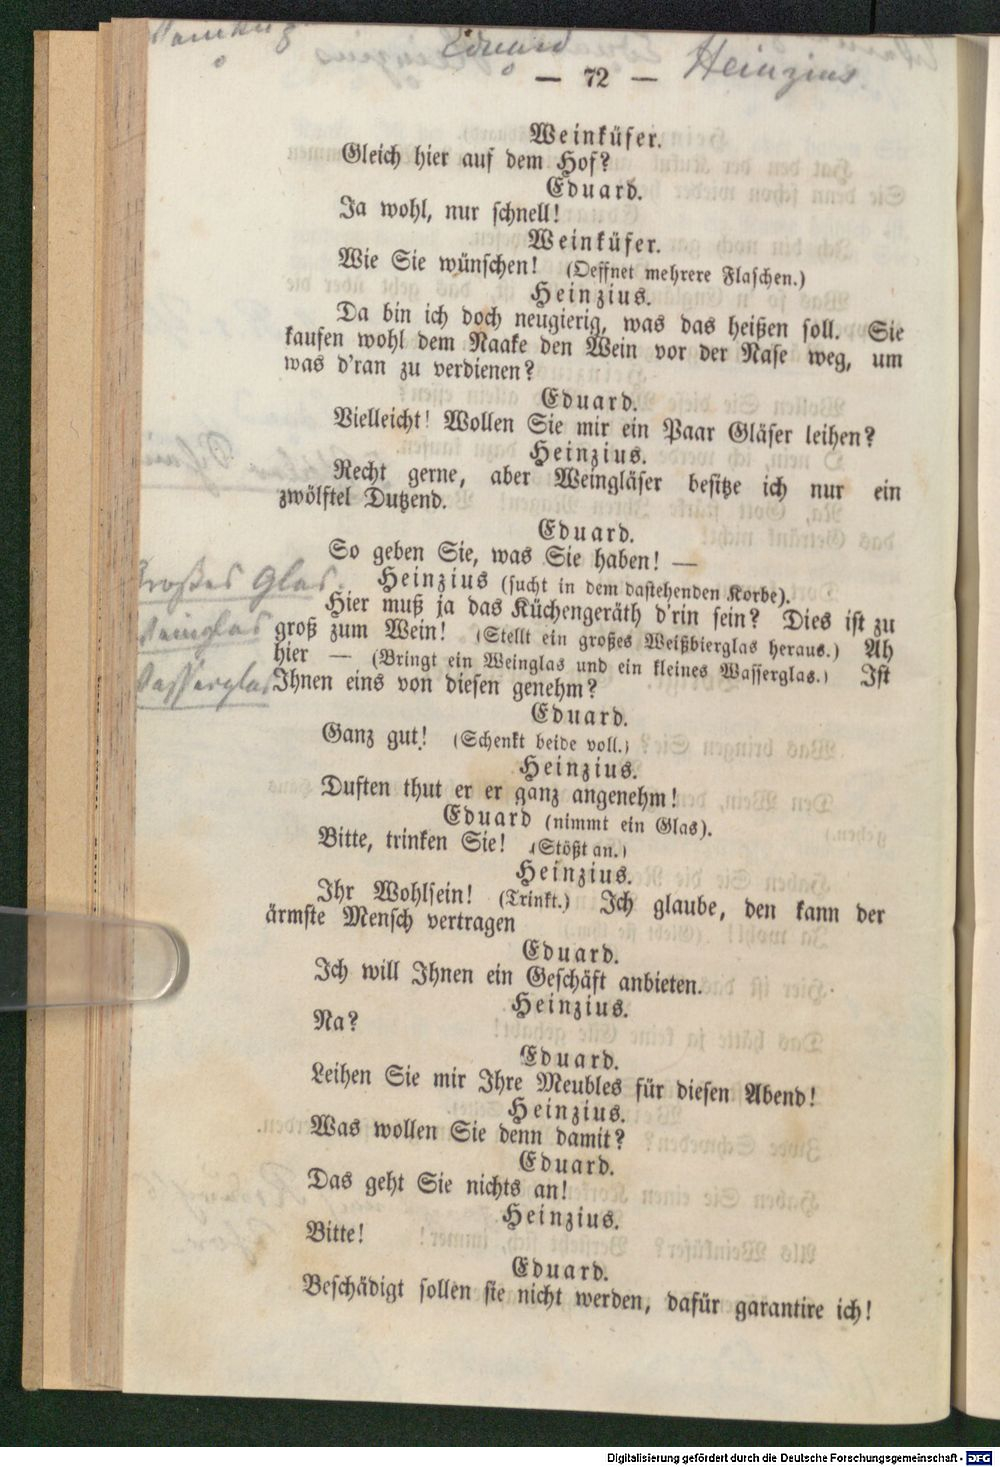 Eduard
Heinzius.
— 72 —
Weinküfer.
Gleich hier auf dem Hof?
Eduard.
Ja wohl, nur schnell!
Weinküfer.
Wie Sie wünschen! (Oeffnet mehrere Flaschen.)
Heinzius.
Da bin ich doch neugierig, was das heißen soll. Sie
kaufen wohl dem Raake den Wein vor der Nase weg, um
was d'ran zu verdienen?
Eduard.
Vielleicht! Wollen Sie mir ein Paar Gläser leihen?
Heinzius.
Recht gerne, aber Weingläser besitze ich nur ein
zwölftel Dutzend.
Eduard.
So geben Sie, was Sie haben! —
Großes Glas.
Heinzius (sucht in dem dastehenden Korbe).
Hier muß ja das Küchengeräth d'rin sein? Dies ist zu
Weinglas
groß zum Wein! (Stellt ein großes Weißbierglas heraus.) Ah
hier — (Bringt ein Weinglas und ein kleines Wasserglas.) Ist
Wasserglas
Ihnen eins von diesen genehm?
Eduard.
Ganz gut! (Schenkt beide voll.)
Heinzius.
Duften thut er er ganz angenehm!
Eduard (nimmt ein Glas).
Bitte, trinken Sie! (Stößt an.)
Heinzius.
Ihr Wohlsein! (Trinkt.) Ich glaube, den kann der
ärmste Mensch vertragen
Eduard.
Ich will Ihnen ein Geschäft anbieten.
Heinzius.
Na?
Eduard.
Leihen Sie mir Ihre Meubles für diesen Abend!
Heinzius.
Was wollen Sie denn damit?
Eduard.
Das geht Sie nichts an!
Heinzius.
Bitte!
Eduard.
Beschädigt sollen sie nicht werden, dafür garantire ich!
Digitalisierung gefördert durch die Deutsche Forschungsgemeinschaft - DFG